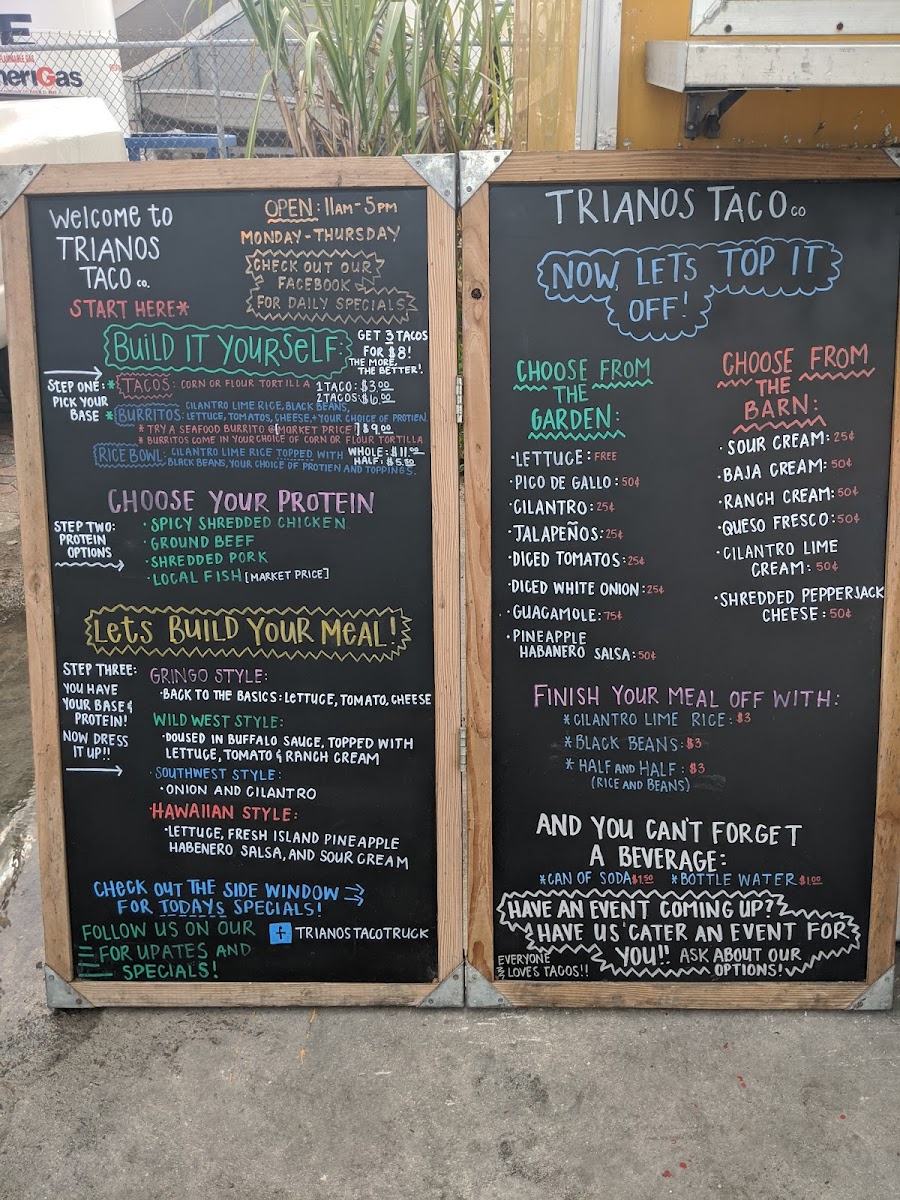 E
meriGas
Welcome to
TRIANOS
TACO CO.
START HERE*
OPEN: 11AM-5PM
MONDAY-THURSDAY
CHECK OUT OUR
FACEBOOK
FOR DAILY SPECIALS
BUILD IT YOURSELF:
GET 3 TACOS
FOR $8!
THE MORE,
THE BETTER!
STEP ONE:
PICK YOUR
BASE
*TACOS: CORN OR FLOUR TORTILLA
1 TACO: $3.00
2 TACOS: $6.00
*BURRITOS: CILANTRO LIME RICE, BLACK BEANS,
LETTUCE, TOMATOS, CHEESE, + YOUR CHOICE OF PROTIEN.
* TRY A SEAFOOD BURRITO @[MARKET PRICE!] $9.00
* BURRITOS COME IN YOUR CHOICE OF CORN OR FLOUR TORTILLA
RICE BOWL: CILANTRO LIME RICE TOPPED WITH
BLACK BEANS, YOUR CHOICE OF PROTIEN AND TOPPINGS.
WHOLE: $11.00
HALF: $5.50
CHOOSE YOUR PROTEIN
STEP TWO:
PROTEIN
OPTIONS
· SPICY SHREDDED CHICKEN
· GROUND BEEF
· SHREDDED PORK
· LOCAL FISH [MARKET PRICE]
LETS BUILD YOUR MEAL!
STEP THREE:
YOU HAVE
YOUR BASE &
PROTEIN!
NOW DRESS
IT UP!!
GRINGO STYLE:
·BACK TO THE BASICS: LETTUCE, TOMATO, CHEESE
WILD WEST STYLE:
·DOUSED IN BUFFALO SAUCE, TOPPED WITH
LETTUCE, TOMATO & RANCH CREAM
·SOUTHWEST STYLE:
·ONION AND CILANTRO
·HAWAIIAN STYLE:
·LETTUCE, FRESH ISLAND PINEAPPLE
HABENERO SALSA, AND SOUR CREAM
CHECK OUT THE SIDE WINDOW
FOR TODAYS SPECIALS!
FOLLOW US ON OUR
FOR UPATES AND
SPECIALS!
f TRIANOSTACOTRUCK
TRIANOS TACO CO
NOW, LETS TOP IT
OFF!
CHOOSE FROM
THE
GARDEN:
·LETTUCE: FREE
·PICO DE GALLO: 50¢
·CILANTRO: 25¢
·JALAPEÑOS: 25¢
·DICED TOMATOS: 25¢
·DICED WHITE ONION: 25¢
·GUACAMOLE: 75¢
·PINEAPPLE
HABANERO SALSA: 50¢
CHOOSE FROM
THE
BARN:
·SOUR CREAM: 25¢
·BAJA CREAM: 50¢
·RANCH CREAM: 50¢
·QUESO FRESCO: 50¢
·CILANTRO LIME
CREAM: 50¢
·SHREDDED PEPPERJACK
CHEESE: 50¢
FINISH YOUR MEAL OFF WITH:
*CILANTRO LIME RICE: $3
*BLACK BEANS: $3
*HALF AND HALF: $3
(RICE AND BEANS)
AND YOU CAN'T FORGET
A BEVERAGE:
*CAN OF SODA $1.50 *BOTTLE WATER $1.00
HAVE AN EVENT COMING UP?
HAVE US CATER AN EVENT FOR
YOU!! ASK ABOUT OUR
OPTIONS!
EVERYONE
LOVES TACOS!!